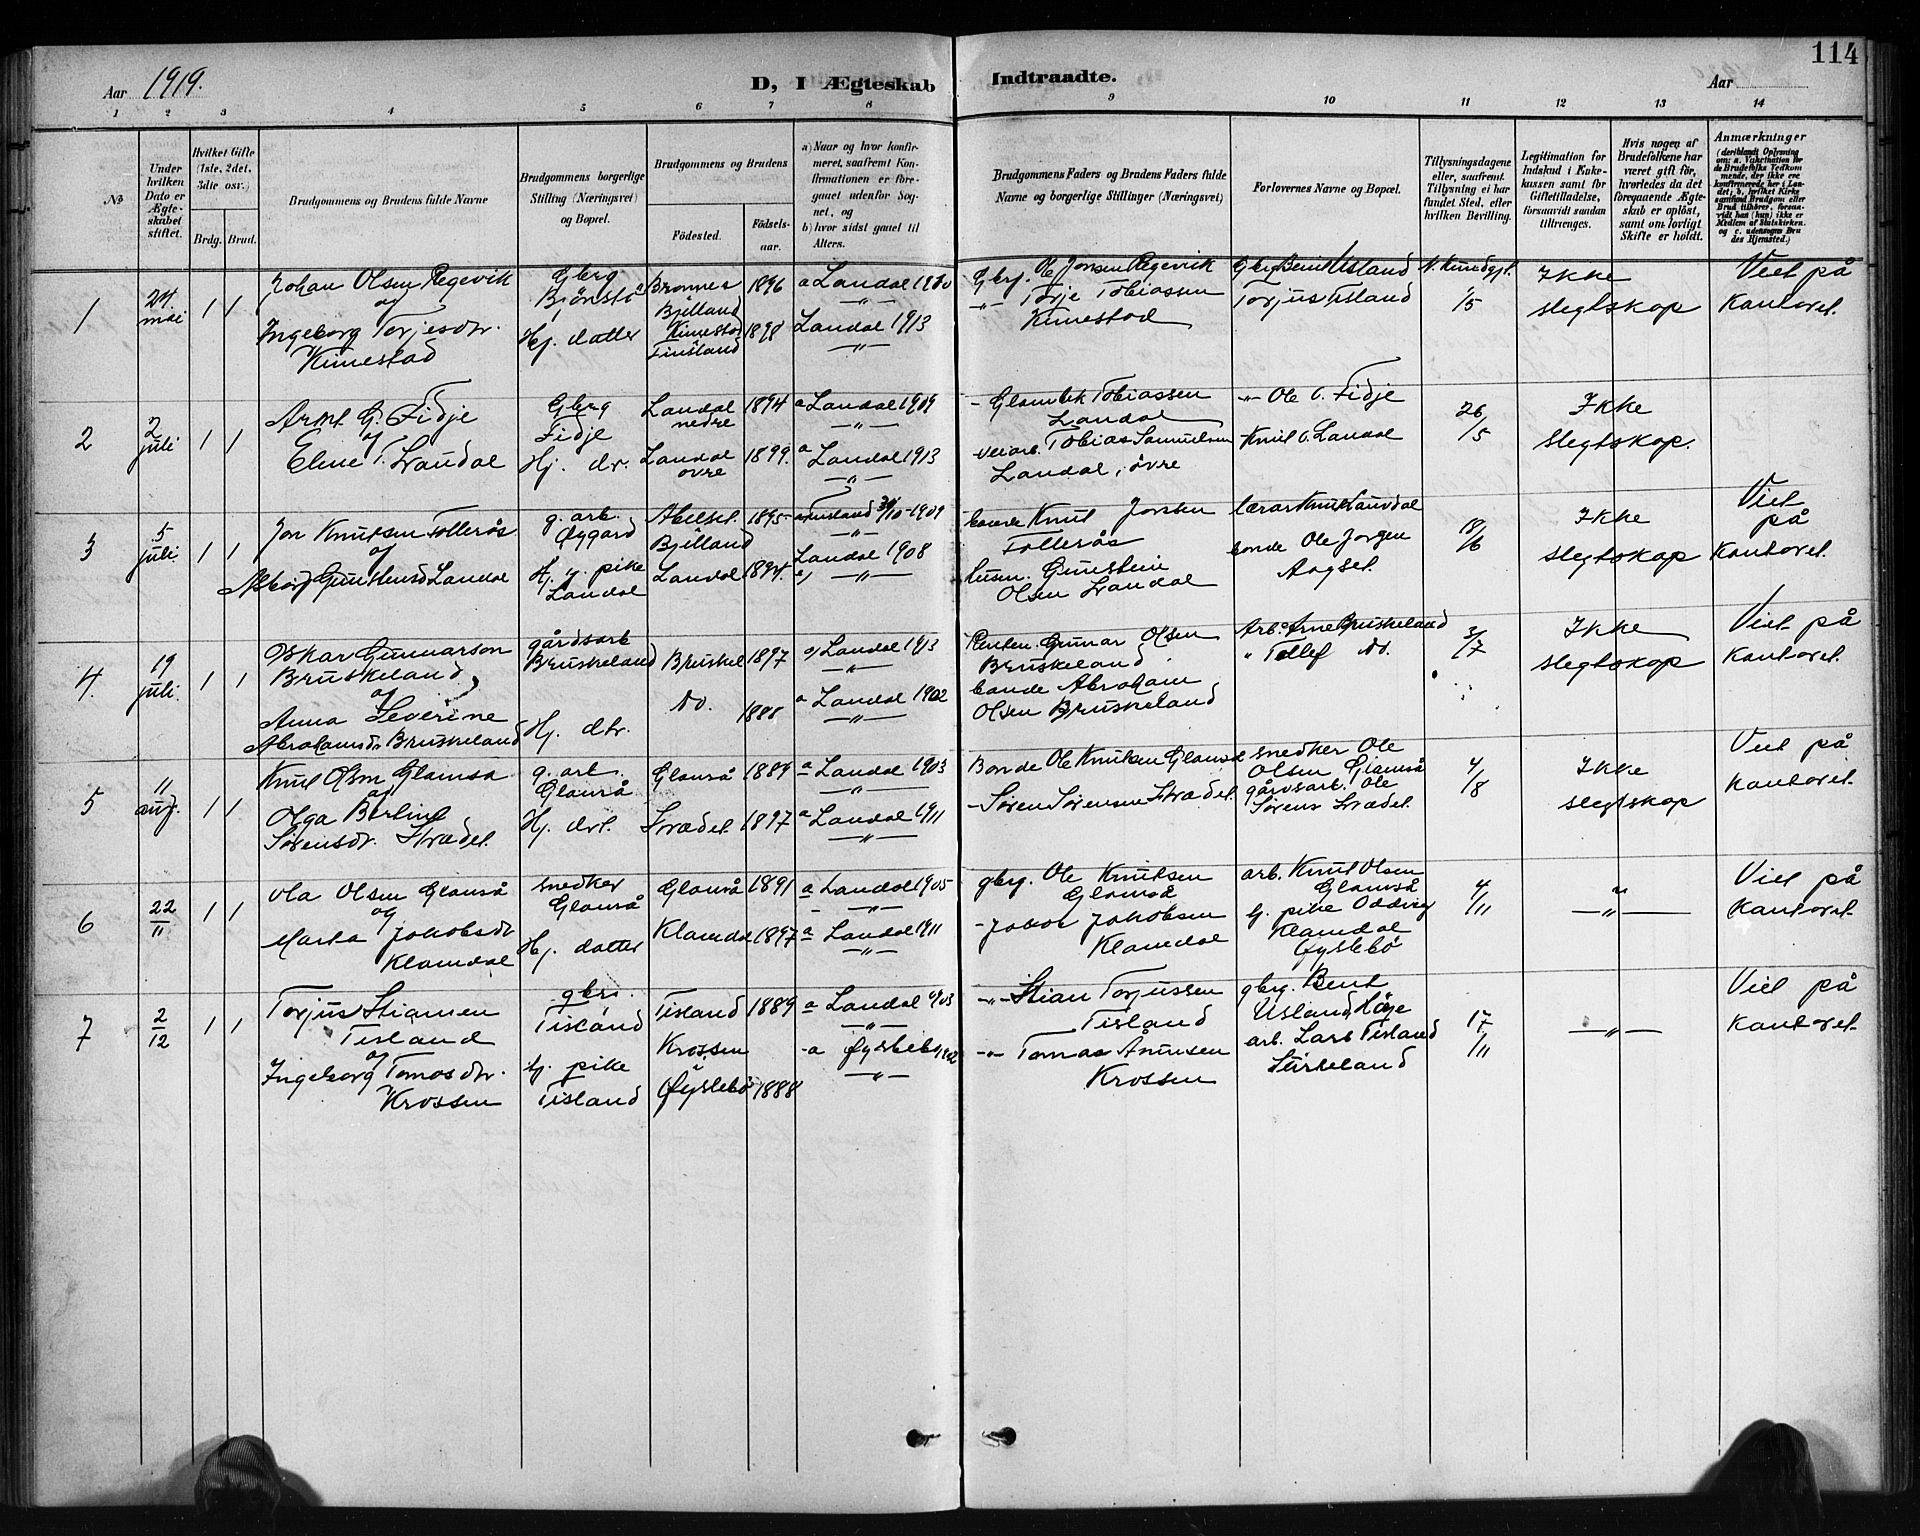 114
Aar 1919.
D, I Ægteskab Indtraadte.
Aar
1 2 3 4 5 6 7 8 9 10 11 12 13 14
№
Under hvilken Dato er Ægteskabet stiftet.
Hvilket Gifte (1ste, 2det, 3die osv.)
Brdg. Brud.
Brudgommens og Brudens fulde Navne
Brudgommens borgerlige Stilling (Næringsvei) og Bopæl.
Brudgommens og Brudens
Födested. Födselsaar.
a) Naar og hvor konfirmeret, saafremt Konfirmationen er foregaaet udenfor Sognet, og
b) hvor sidst gaaet til Alters.
Brudgommens Faders og Brudens Faders fulde Navne og borgerlige Stillinger (Næringsvei)
Forlovernes Navne og Bopæl.
Tillysningsdagene eller, saafremt Tillysning ei har fundet Sted, efter hvilken Bevilling.
Legitimation for Indskud i Enkekassen samt for Giftetilladelse, forsaavidt saadan tiltrænges.
Hvis nogen af Brudefolkene har været gift før, hvorledes da det foregaaende Ægteskab er opløst, samt om lovligt Skifte er holdt.
Anmærkninger
1 24 mai 1 1
Johan Olsen Regevik
og
Ingeborg Torjesdtr.
Kimestad
Gbrg
Bjönstö
Hj. datter
Bjelland 1896
Kimestad
Finsland 1898
a Laudal 1910
—"—
Laudal 1913
—"—
Gbrg. Ole Jonsen Regevik
—"— Torje Tobiassen
Kimestad
Gbrg Bent Usland
Torjus Tisland
1/5
Ikke
slegtskap
Viet på
Kontoret.
2 2 juli 1 1
Arnt G. Fidje
og
Eline T. Laudal
Gbrg
Fidje
Hj. dr.
Laudal nedre 1894
Laudal övre 1899.
a Laudal 1909
—"—
a Laudal 1913
—"—
Tobiassen
Laudal
veiarb. Tobias Samuelsen
Laudal, övre
—"— Ole O. Fidje
Knut O. Laudal
26/5
Ikke
slegtskap.
3 5 juli. 1 1
Jon Knutsen Follerås
og
Gunsteinsd Laudal
g. arb.
Öygard
Hj. g. pike
Laudal
Abelset.
Bjelland 1895
Laudal 1894.
1909
—"—
Laudal 1908
—"—
bonde Knut Jonsen
Follerås
husm. Gunstein
Olsen Laudal
lærer Knut Laudal
bonde Ole Jorgen
18/6
Ikke
slegtskap
Viet
på
Kontoret.
4. 19 juli. 1 1
Oskar Gunnarson
Bruskeland,
og
Anna Severine
Abrahamsdr Bruskeland
gårdsarb
Bruskeland
Hj. dtr.
Bruskel 1897
do. 1888
a) Laudal 1913
—"—
a Laudal 1902
—"—
Gunnar Olsen
Bruskeland
bonde Abraham
Olsen Bruskeland
Arb. Arne Bruskeland
" Tollef do.
3/7
Ikke
slegtskap
Viet på
Kontoret.
5 11 aug. 1 1
Knut Olsen Glamså
og
Olga Bertine
Sörensdr. Strædet.
g. arb.
Glamså
Hj. drt.
Glamså 1889
Strædet 1897
a Laudal 1903
—"—
a Laudal 1911
—"—
Bonde Ole Knutsen Glamså
—Sören Sörensen Strædet
snedker Ole
Olsen Glamså
gårdsarb. Ole
Sörens Strædet.
4/8
Ikke
slegtskap
Viet på
Kontoret.
6 22/11 1 1
Ola Olsen Glamså
og
Marta Jakobsdr
Klamdal
snedker
Glamså
Hj. datter
Glamså 1891
Klamdal 1897
a Laudal 1905
—"—
a Laudal 1911
—"—
gbrg. Ole Knutsen
Glamså
—Jakob Jakobsen
Klamdal
arb. Knut Olsen
Glamså
hj. pike Oddvig
Klamdal
Öyslebö
4/11
—"—
Viet på
Kontoret.
7 2/12 1 1
Torjus Stiansen
Tisland
og
Ingeborg Tomasdtr.
Krossen
gbr.
Tisland
hj. pike
Tisland
Tisland 1889
Krossen
Öyslebö 1888
a Laudal 1903
—"—
a Öyslebö 1902
—"—
—"— Stian Torjussen
Tisland
—"— Tomas
Krossen
gbrg. Bent
Usland, Höye
arb. Lars Tisland
17/11
—"—
Viet på
Kontoret.